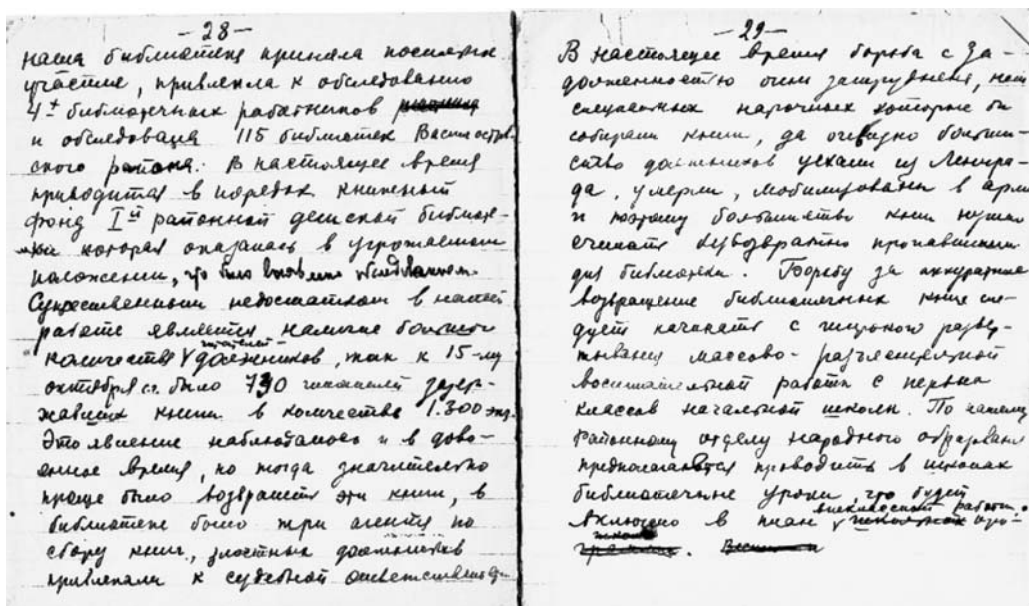 —28—
наша библиотека приняла посильное
участие, привлекла к обследованию
4х библиотечных работников
и обследовала 115 библиотек Василеостров
ского района. В настоящее время
приводится в порядок книжный
фонд I-й районной детской библиоте-
ки которая оказалась в угрожаемом
положении, что было выявлено обследованием.
Существенным недостатком в нашей
работе является наличие большого
количества читателей-должников, так к 15-му
октября с.г. было 730 читателей задер-
жавших книги в количестве 1.300 экз.
Это явление наблюдалось и в дово-
енное время, но тогда значительно
проще было возвратить эти книги, в
библиотеке было три агента по
сбору книг, злостных должников
привлекали к судебной ответственности
—29—
В настоящее время борьба с за-
долженностью очень затруднена, нет
специальных нарочных которые бы
собирали книги, да очевидно большин-
ство должников уехали из Ленингра-
да, умерли, мобилизованы в арм
и поэтому большинство книг нужно
считать безвозвратно пропавшими
для библиотеки. Борьбу за аккуратное
возвращение библиотечных книг сле-
дует начинать с широкого развер-
тывания массово-разъяснительной
воспитательной работы с первых
классов начальной школы. По нашему
районному отделу народного образован
предполагается проводить в школах
библиотечные уроки, что будет
включено в план внеклассной работы